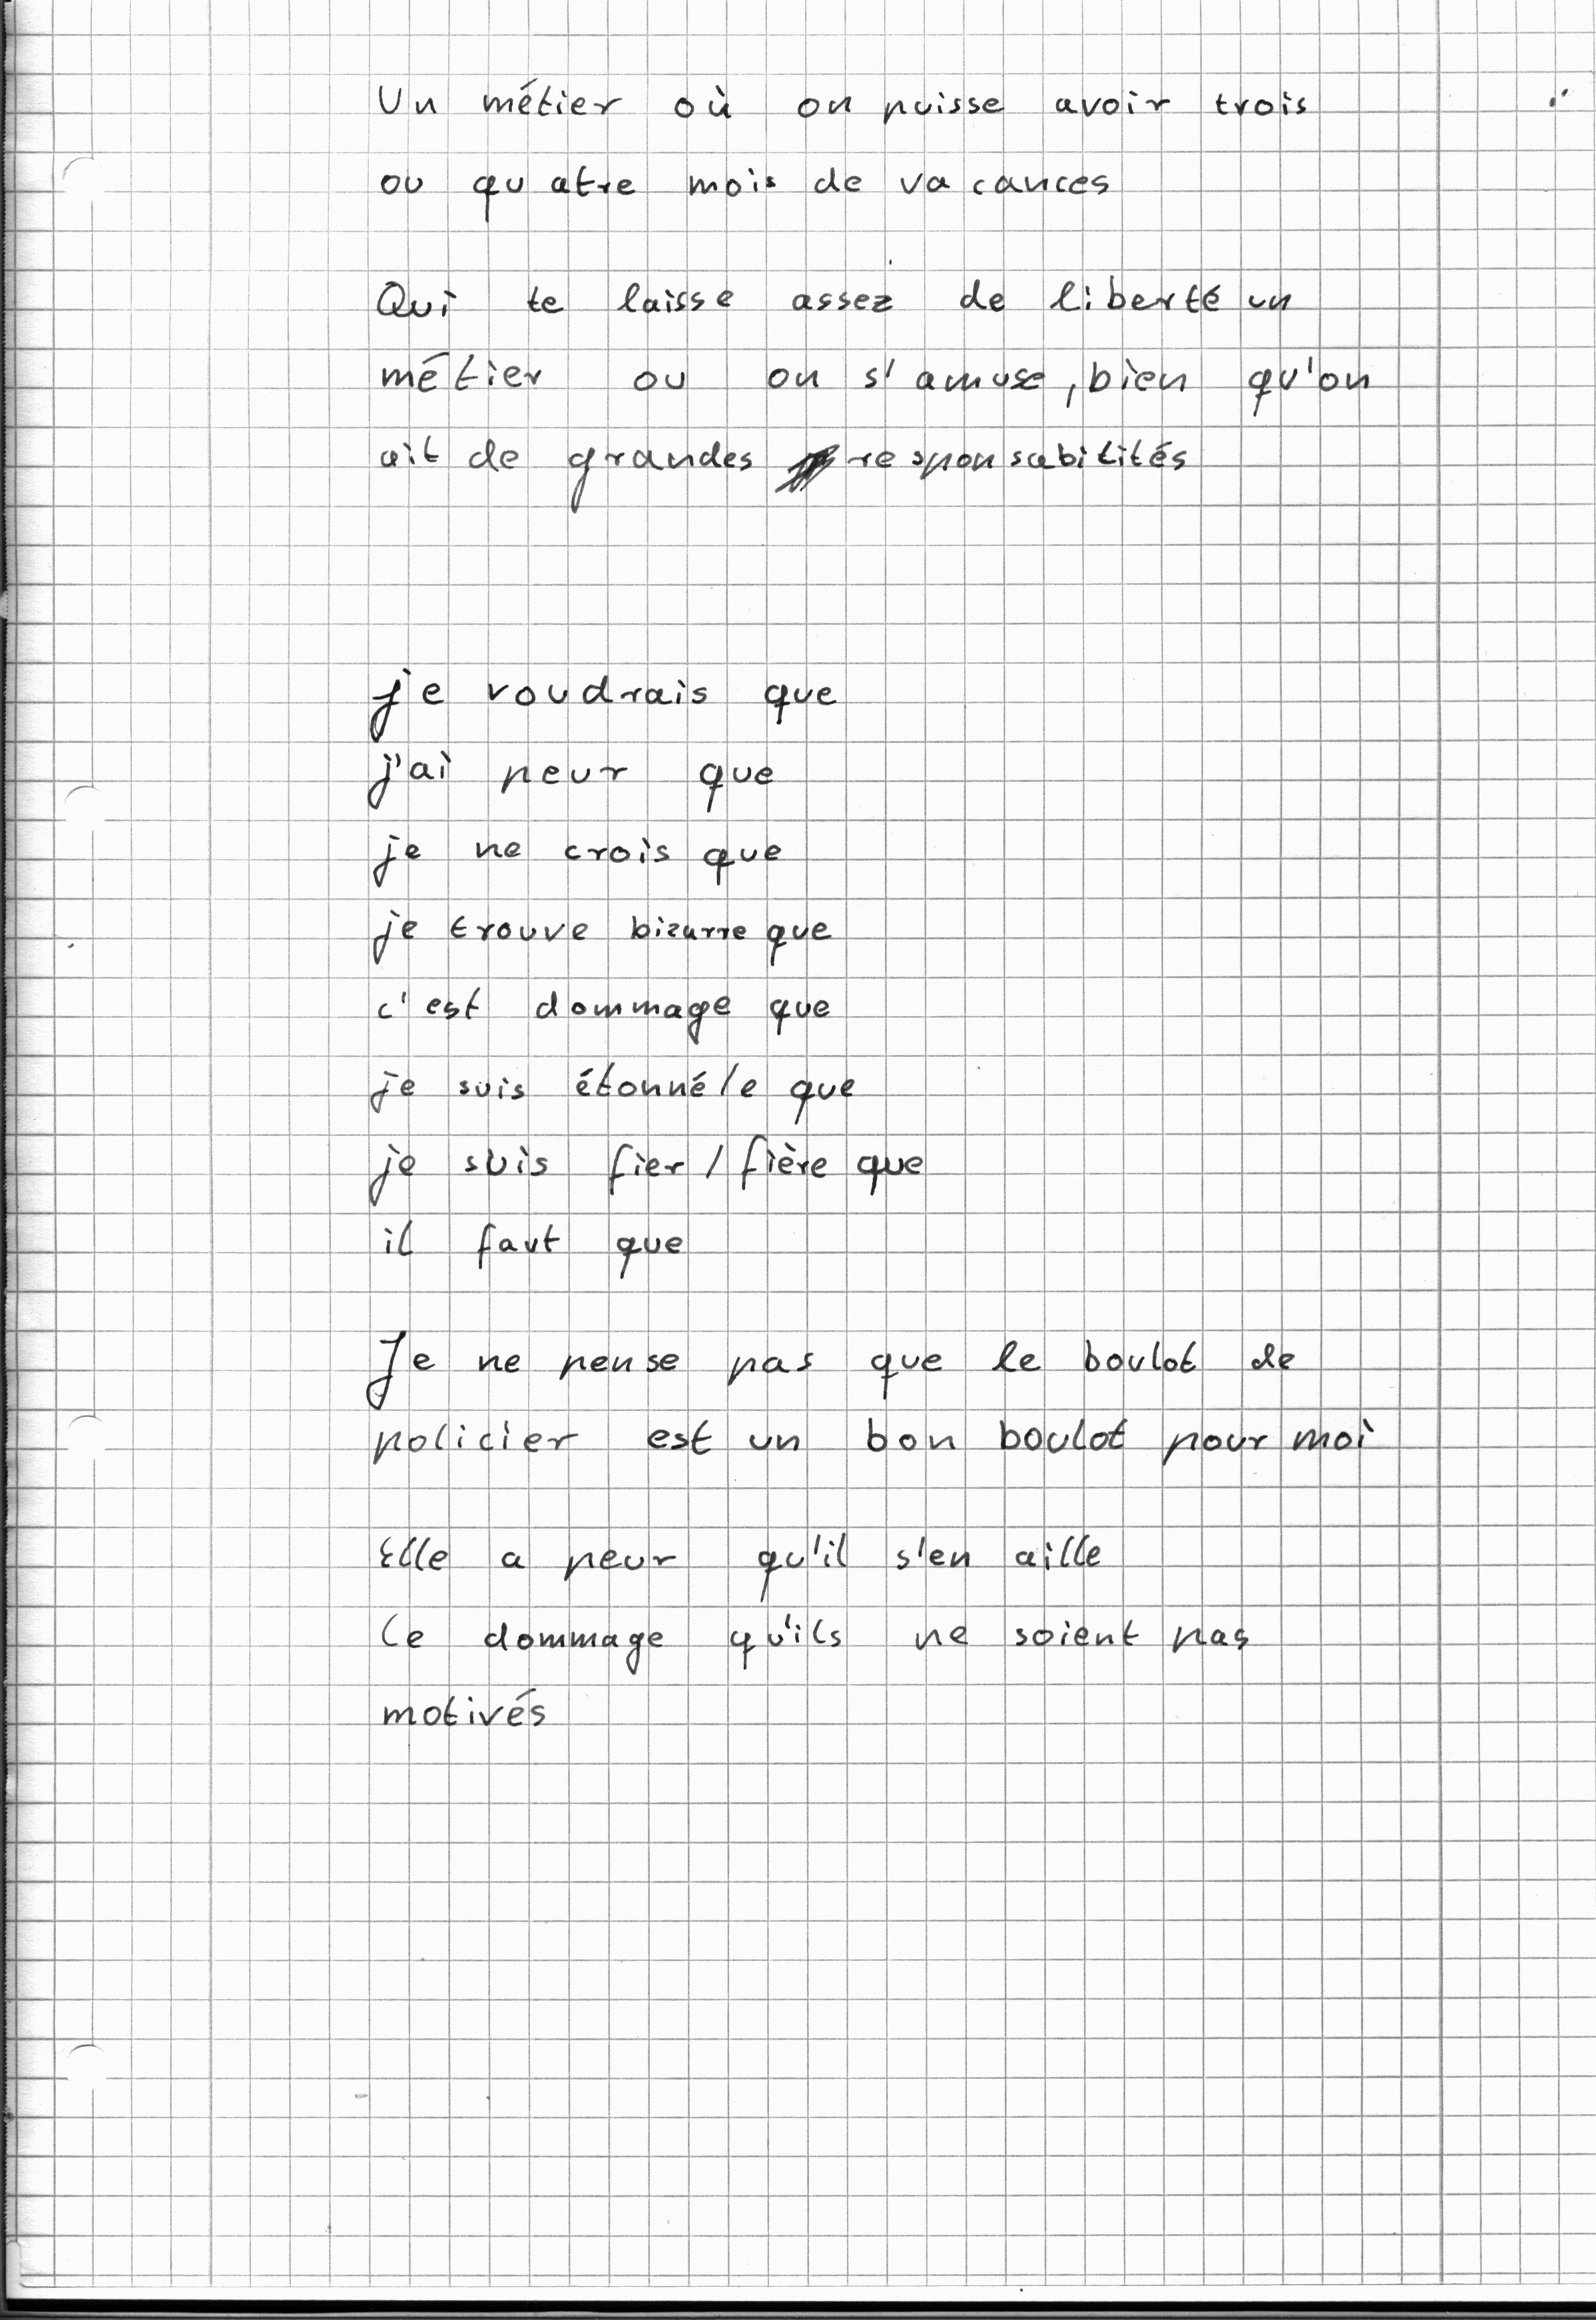 Un métier où on puisse avoir trois
ou quatre mois de vacances
Qui te laisse assez de liberté un
métier ou on s'amuse, bien qu'on
ait de grandes responsabilités
je voudrais que
j'ai peur que
je ne crois que
je trouve bizarre que
c'est dommage que
je suis étonné/e que
je suis fier / fière que
il faut que
Je ne pense pas que le boulot de
policier est un bon boulot pour moi
Elle a peur qu'il s'en aille
Ce dommage qu'ils ne soient pas
motivés